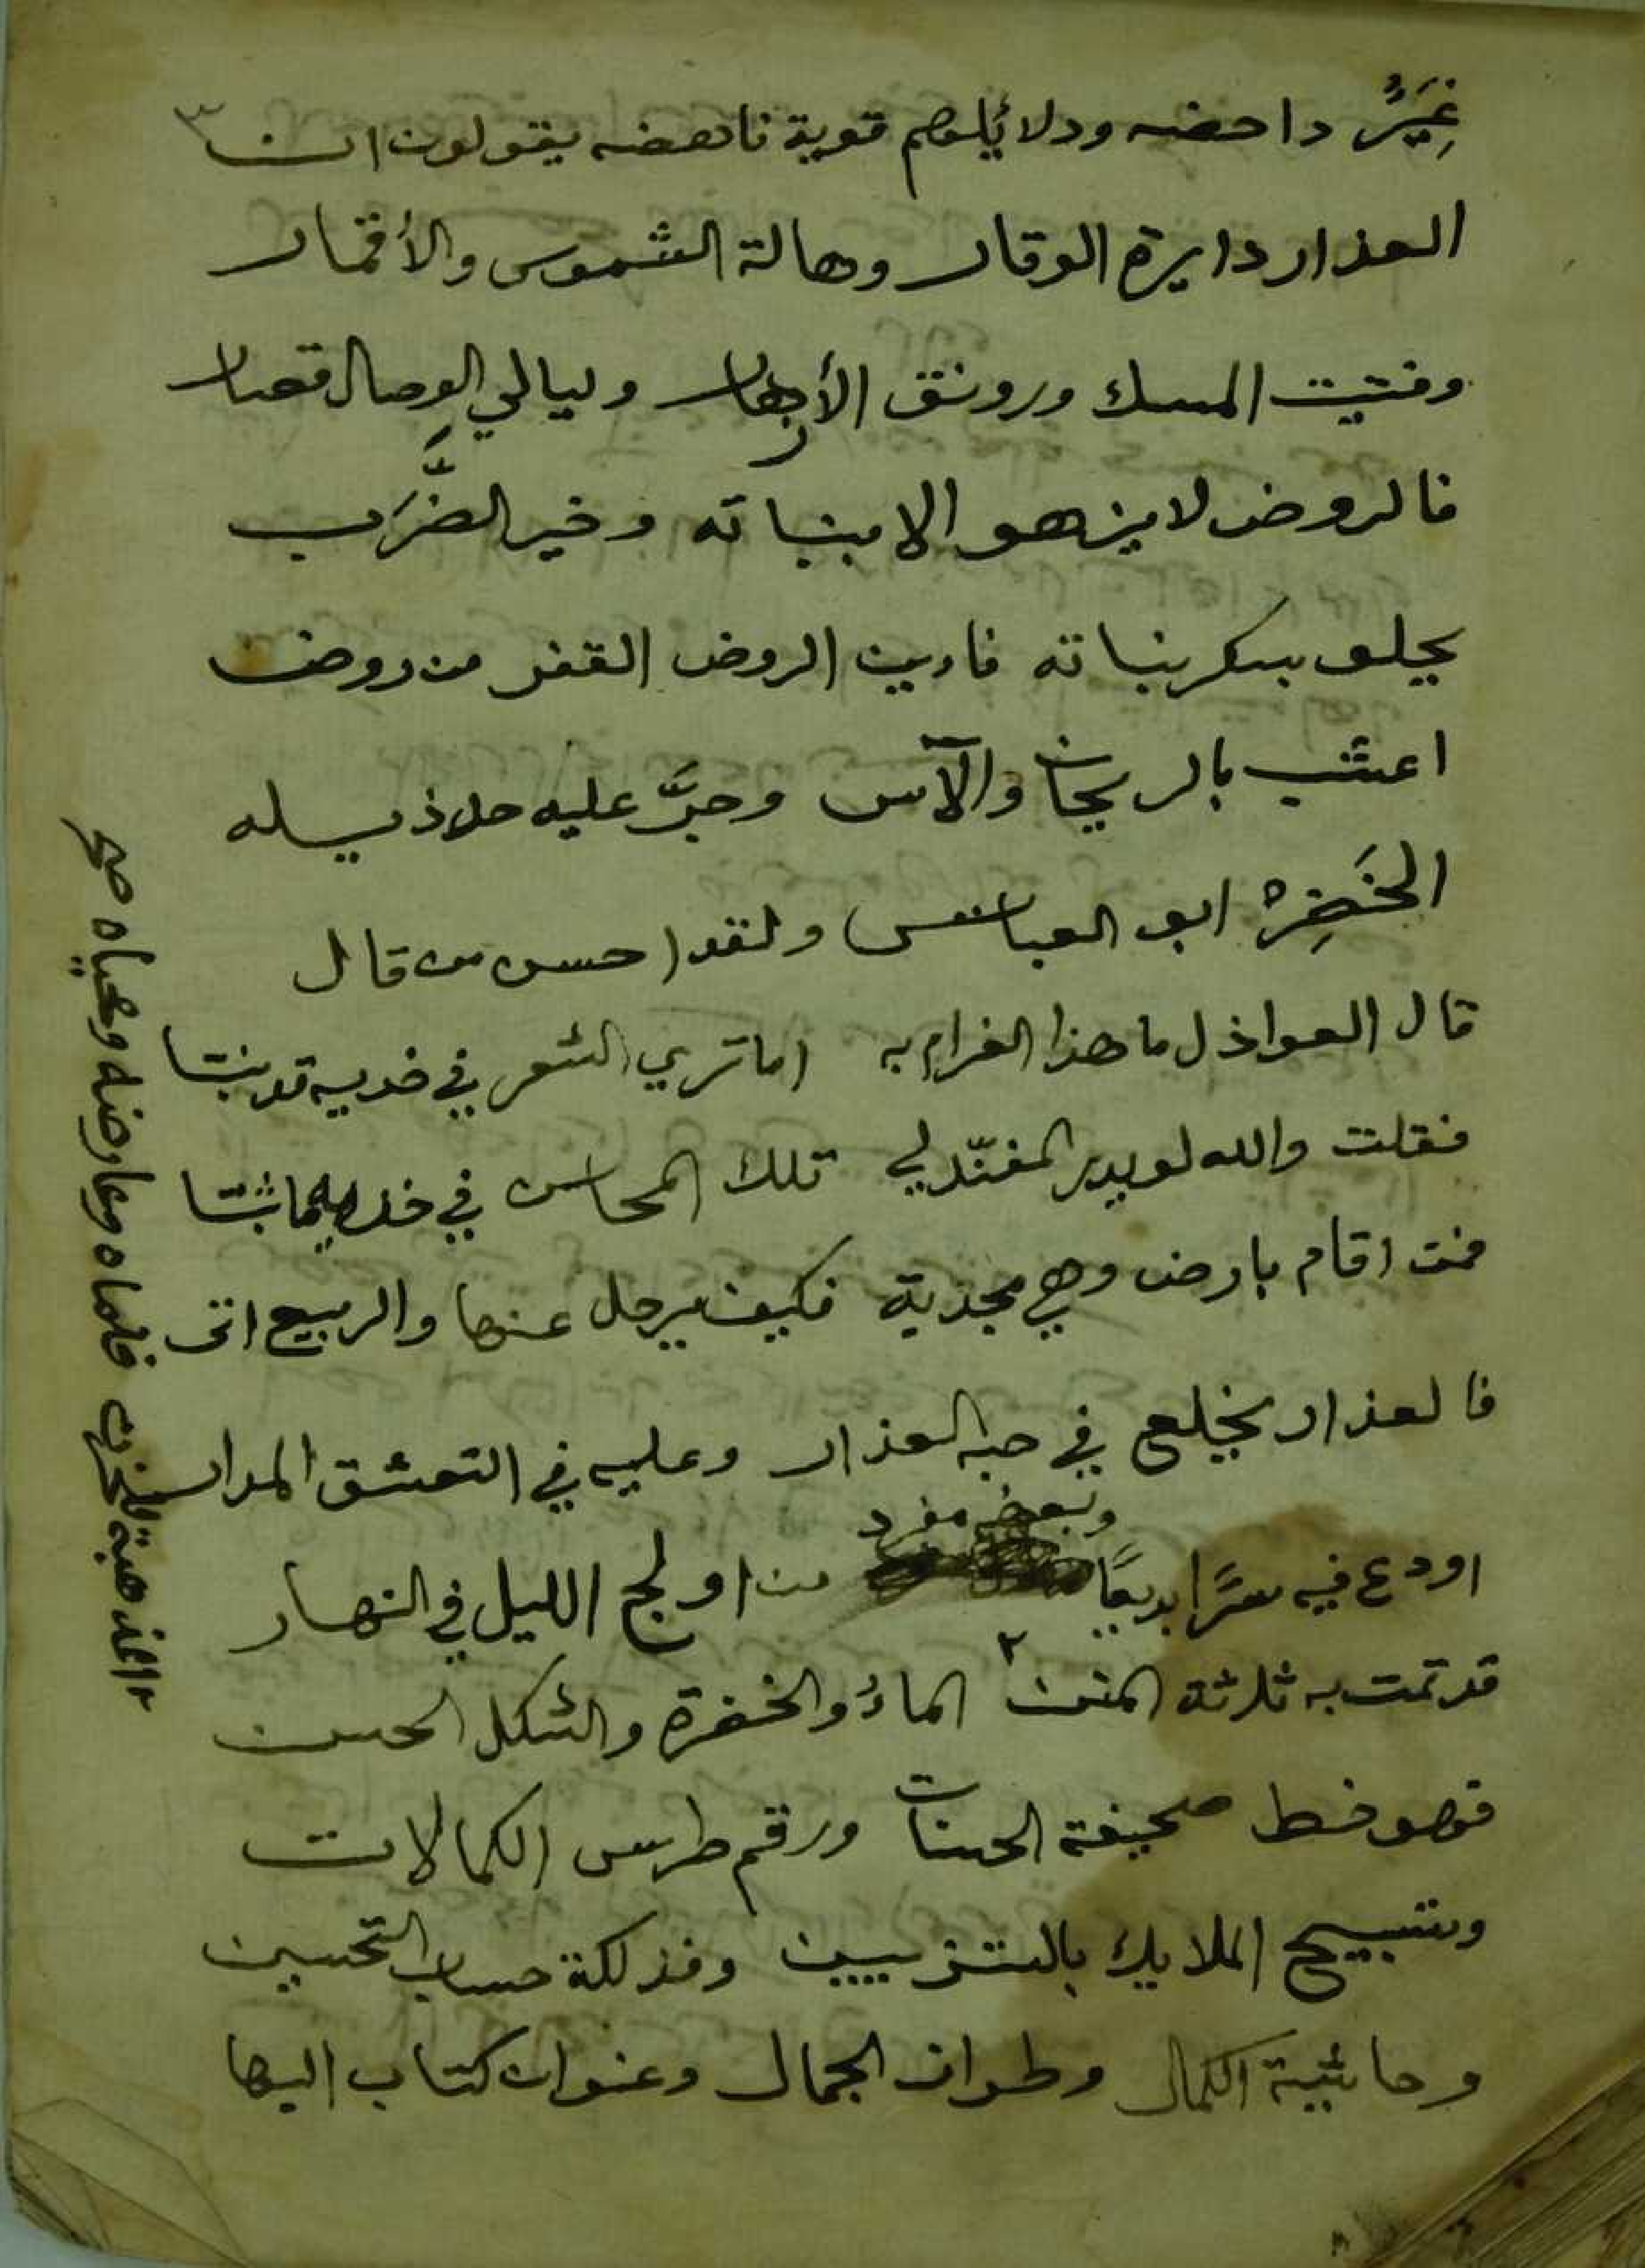 غَيْرُ داحضه ودلائلهم قوية ناهضه يقولون ان
العذار دايرة الوقار وهالة الشموس والأقمار
وفتيت المسك ورونق الأزهار وليالي الوصال قصار
فالروض لا يزهو الا بنباته وخير الضَّرَب
يحلو بسكر نباته فاين الروض القفر من روض
اعشب بالريحان والآس وجرَّ عليه ذيله
الخَضِرُ ابو العباس ولقد احسن من قال
قال العواذل ما هذا الغرام به اما تري الشعر في خديه قد نبتا
فقلت والله لو المفنّد لي تلك المحاسن في خديه ما ثبتا
فمن اقام بارض وهي مجدبة فكيف يرحل عنها والربيع اتى
فالعذار يخلع في حبه العذار وعليه في التعشق المدار
اودع فيه سرًّا بديعًا وبعض مفرد من اولج الليل في النهار
قد تمت به ثلاثة المنن ٢ الماءُ والخضرة والشكل الحسن
فهو خط صحيفة الحسنات ورقم طرس الكمالات
وتسبيح الملايك بالتزيين وفذلكة حساب التحسين
وحاشية الكمال وطراز الجمال وعنوان كتاب البها
٢ المذهبة للحزن فلماه وعارضه ومحياه صح